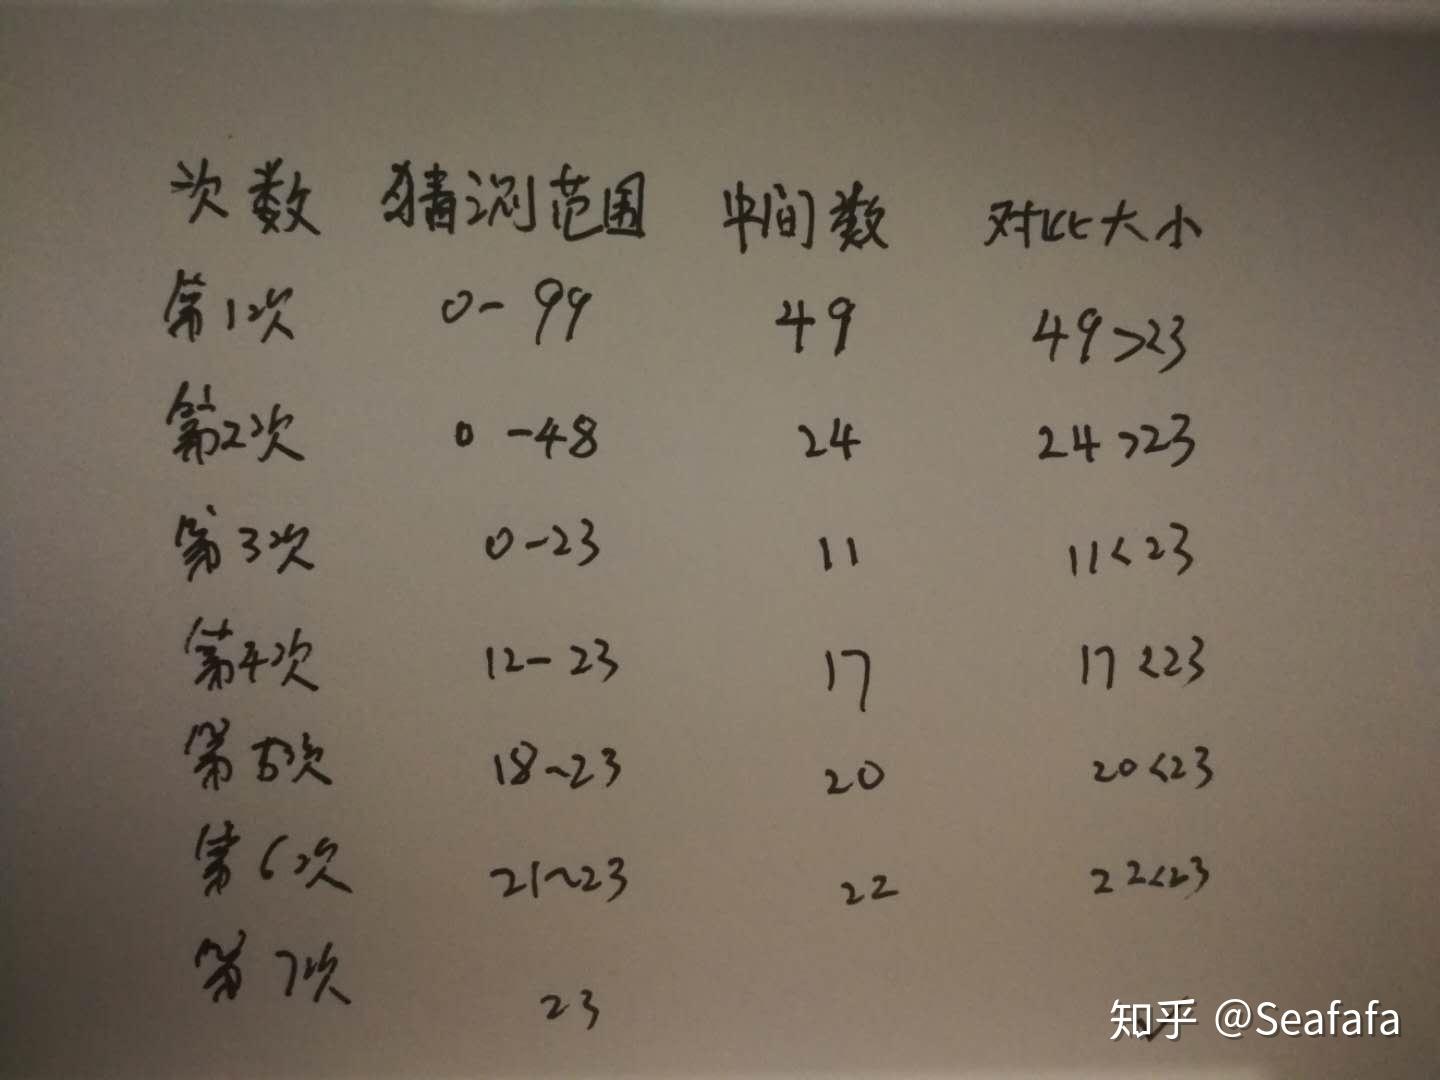 次数 猜测范围 中间数 对比大小
第1次 0-99 49 49>23
第2次 0-48 24 24>23
第3次 0-23 11 11<23
第4次 12-23 17 17<23
第5次 18~23 20 20<23
第6次 21~23 22 22<23
第7次 23
知乎 @Seafafa